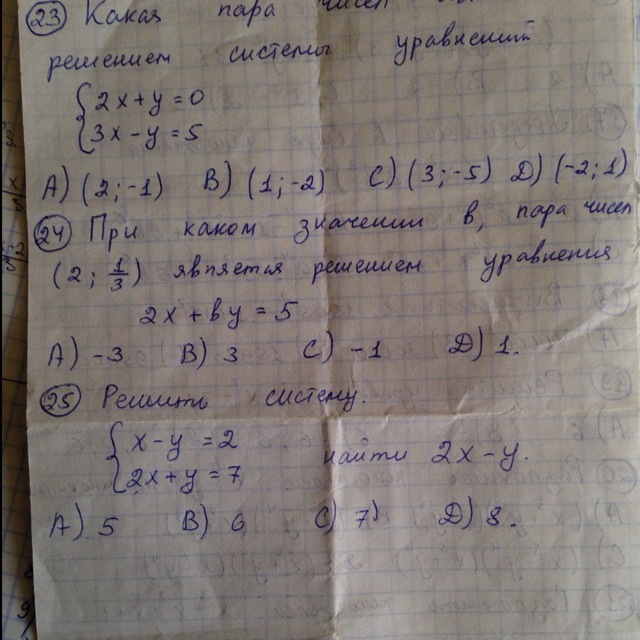 23 Какая пара чисел
решением системы уравнений
2x+y=0
3x-y=5
A) (2;-1) B) (1;-2) C) (3;-5) D) (-2;1)
24 При каком значении в, пара чисел
(2; 1/3) является решением уравнения
2x+вy=5
A) -3 B) 3 C) -1 D) 1.
25 Решить систему.
x-y=2
2x+y=7 найти 2x-y.
A) 5 B) 6 C) 7) D) 8.